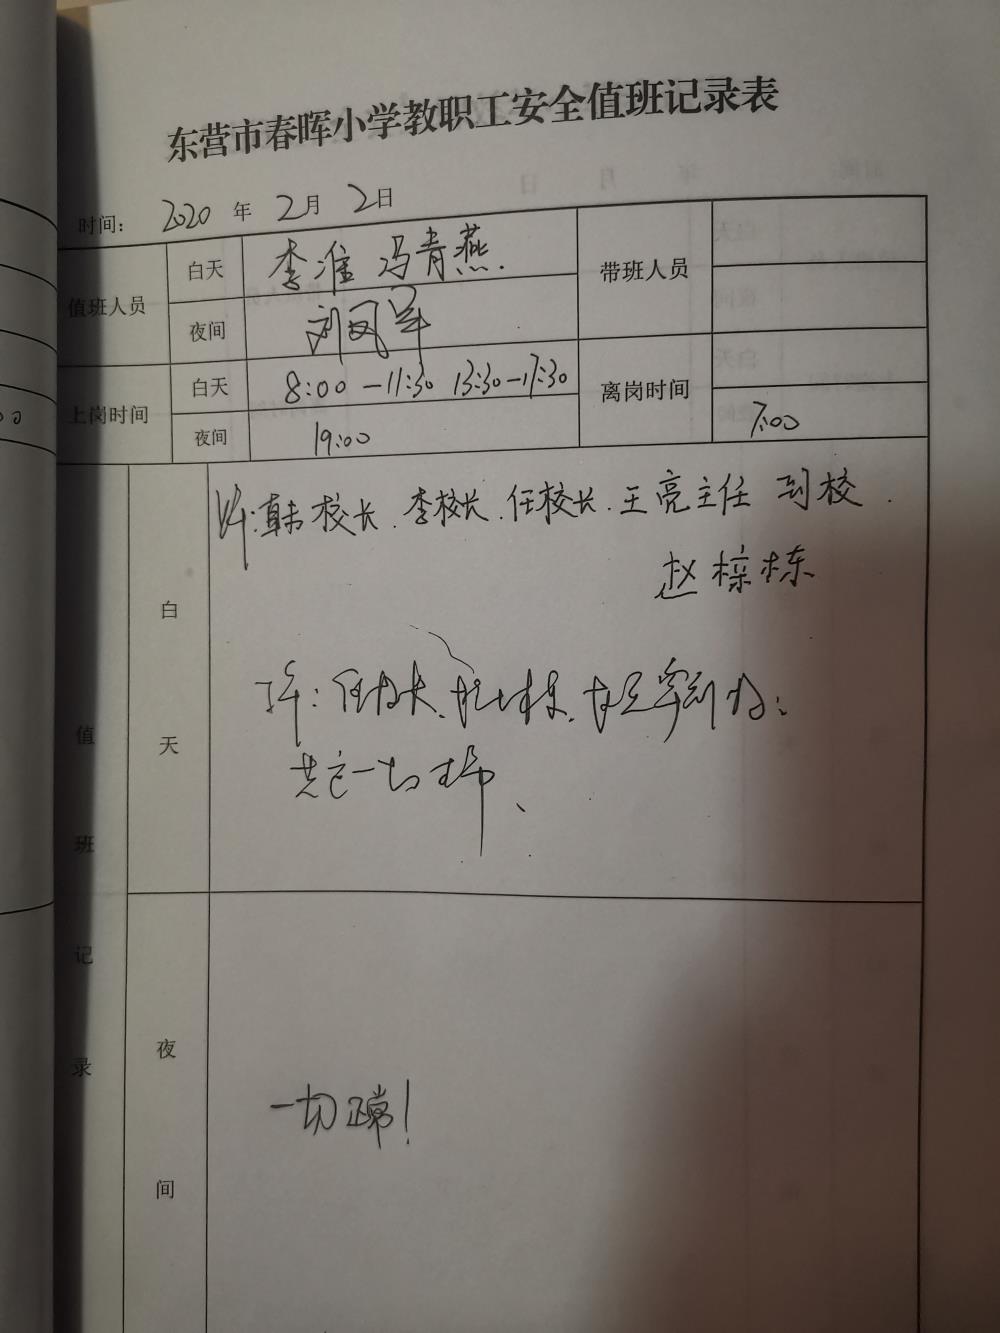 东营市春晖小学教职工安全值班记录表
时间： 2020 年 2月 2日
值班人员 白天 李淮 冯青燕. 带班人员
夜间 刘凤军
上岗时间 白天 8:00 -11:30 13:30-17:30 离岗时间
夜间 19:00 7:00
值班记录
白天
韩校长.李校长.任校长.王亮主任 到校.
赵樟栋
下午：任校长
一切正常
夜间
一切正常！